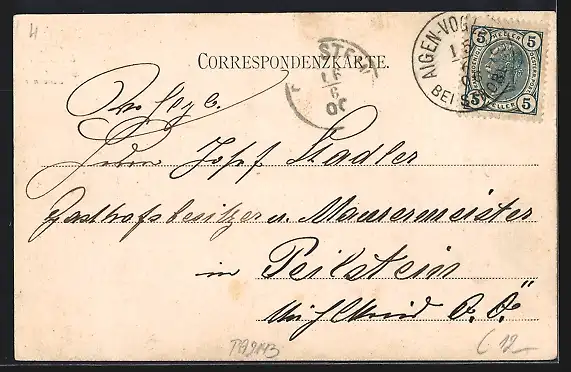 4
CORRESPONDENZKARTE.
AIGEN-VOG
15
BEI S
5 HELLER 5
5 HELLER 5
15
6
Herrn Josef Stadler
Gasthofsbesitzer u. Maurermeister
in Peilstein
Mühlkreis O. Ö.
TA9143
12 -